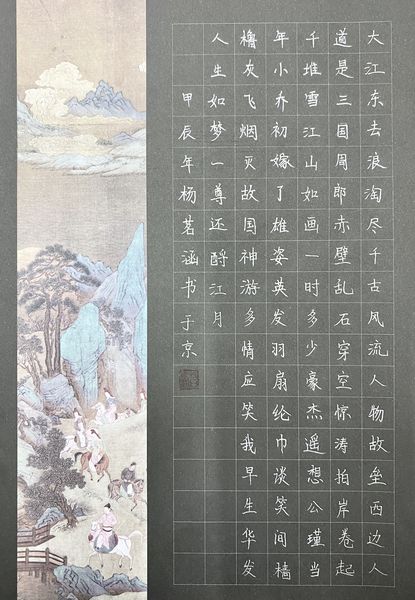 大江东去浪淘尽千古风流人物故垒西边人
道是三国周郎赤壁乱石穿空惊涛拍岸卷起
千堆雪江山如画一时多少豪杰遥想公瑾当
年小乔初嫁了雄姿英发羽扇纶巾谈笑间樯
橹灰飞烟灭故国神游多情应笑我早生华发
人生如梦一尊还酹江月
甲辰年杨茗涵书于京